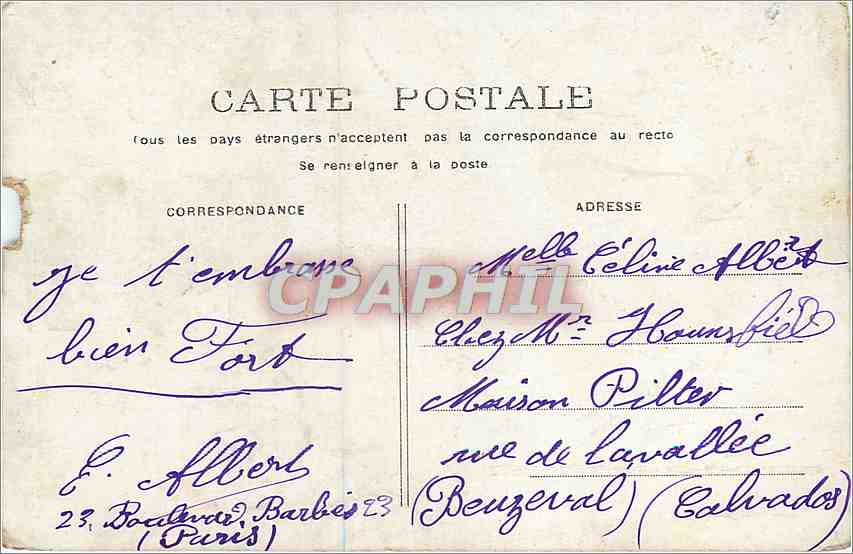 CARTE POSTALE
Tous les pays étrangers n'acceptent pas la correspondance au recto
Se renseigner à la poste
CORRESPONDANCE
je t'embrasse
bien Fort
E. Albert
23, Boulevard Barbès 23
(Paris)
ADRESSE
Melle Céline Albert
Chez Mr Hounsfield
Maison Pilter
rue de la vallée
(Beuzeval) (Calvados)
CPAPHIL